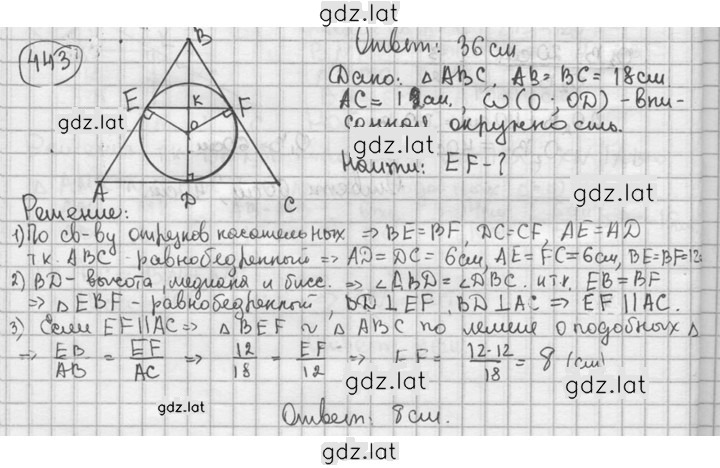 gdz.lat
443
Ответ: 36 см
Дано: △ ABC, AB = BC = 18 см
AC = 12 см, ω (O; OD) - впи-
санная окружность.
Найти: EF - ?
B
E K F
O
A D C
gdz.lat
gdz.lat
gdz.lat
Решение:
1) По св-ву отрезков касательных ⇒ BE = BF, DC = CF, AE = AD
т.к. ABC - равнобедренный ⇒ AD = DC = 6см, AE = FC = 6см, BE = BF = 12
2) BD - высота, медиана и бисс. ⇒ ∠ABD = ∠DBC. и т.к. EB = BF
⇒ △ EBF - равнобедренный, BD ⊥ EF, BD ⊥ AC ⇒ EF || AC.
3) Если EF || AC ⇒ △ BEF ~ △ ABC по лемме о подобных △
⇒ EB/AB = EF/AC ⇒ 12/18 = EF/12 ⇒ EF = 12·12/18 = 8 (см)
gdz.lat
gdz.lat
gdz.lat
Ответ: 8 см.
gdz.lat